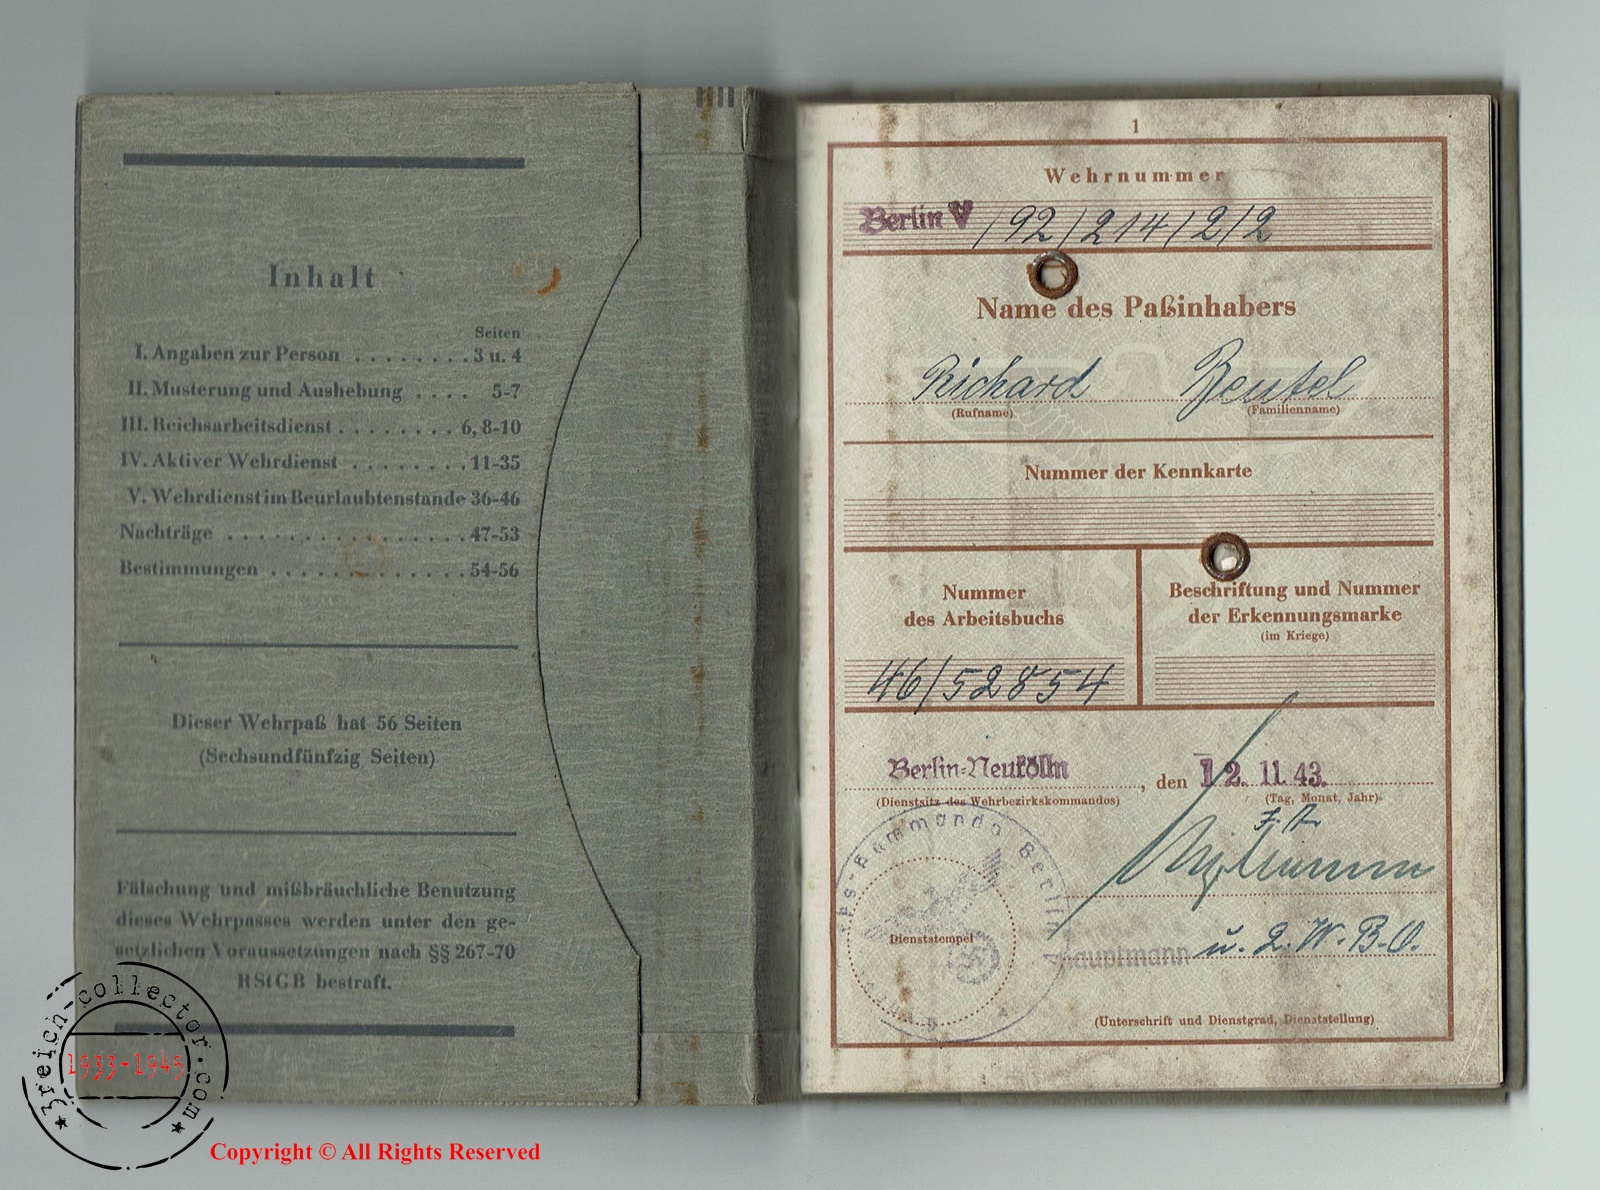 Inhalt
Seiten
I. Angaben zur Person ........ 3 u. 4
II. Musterung und Aushebung .... 5-7
III. Reichsarbeitsdienst ........ 6, 8-10
IV. Aktiver Wehrdienst ........ 11-35
V. Wehrdienst im Beurlaubtenstande 36-46
Nachträge ............... 47-53
Bestimmungen ............ 54-56
Dieser Wehrpaß hat 56 Seiten
(Sechsundfünfzig Seiten)
Fälschung und mißbräuchliche Benutzung
dieses Wehrpasses werden unter den ge-
setzlichen Voraussetzungen nach §§ 267-70
RStGB bestraft.
1
Wehrnummer
Berlin V /92/214/2/2
Name des Paßinhabers
Richard Beutel
(Rufname) (Familienname)
Nummer der Kennkarte
Nummer
des Arbeitsbuchs
46/52854
Beschriftung und Nummer
der Erkennungsmarke
(im Kriege)
Berlin-Neukölln, den 12. 11. 43.
(Dienstsitz des Wehrbezirkskommandos) (Tag, Monat, Jahr)
Kommando Berlin
Dienststempel
Hauptmann u. 2. W.B.O.
(Unterschrift und Dienstgrad, Dienststellung)
3reich-collector.com
1933-1945
Copyright © All Rights Reserved